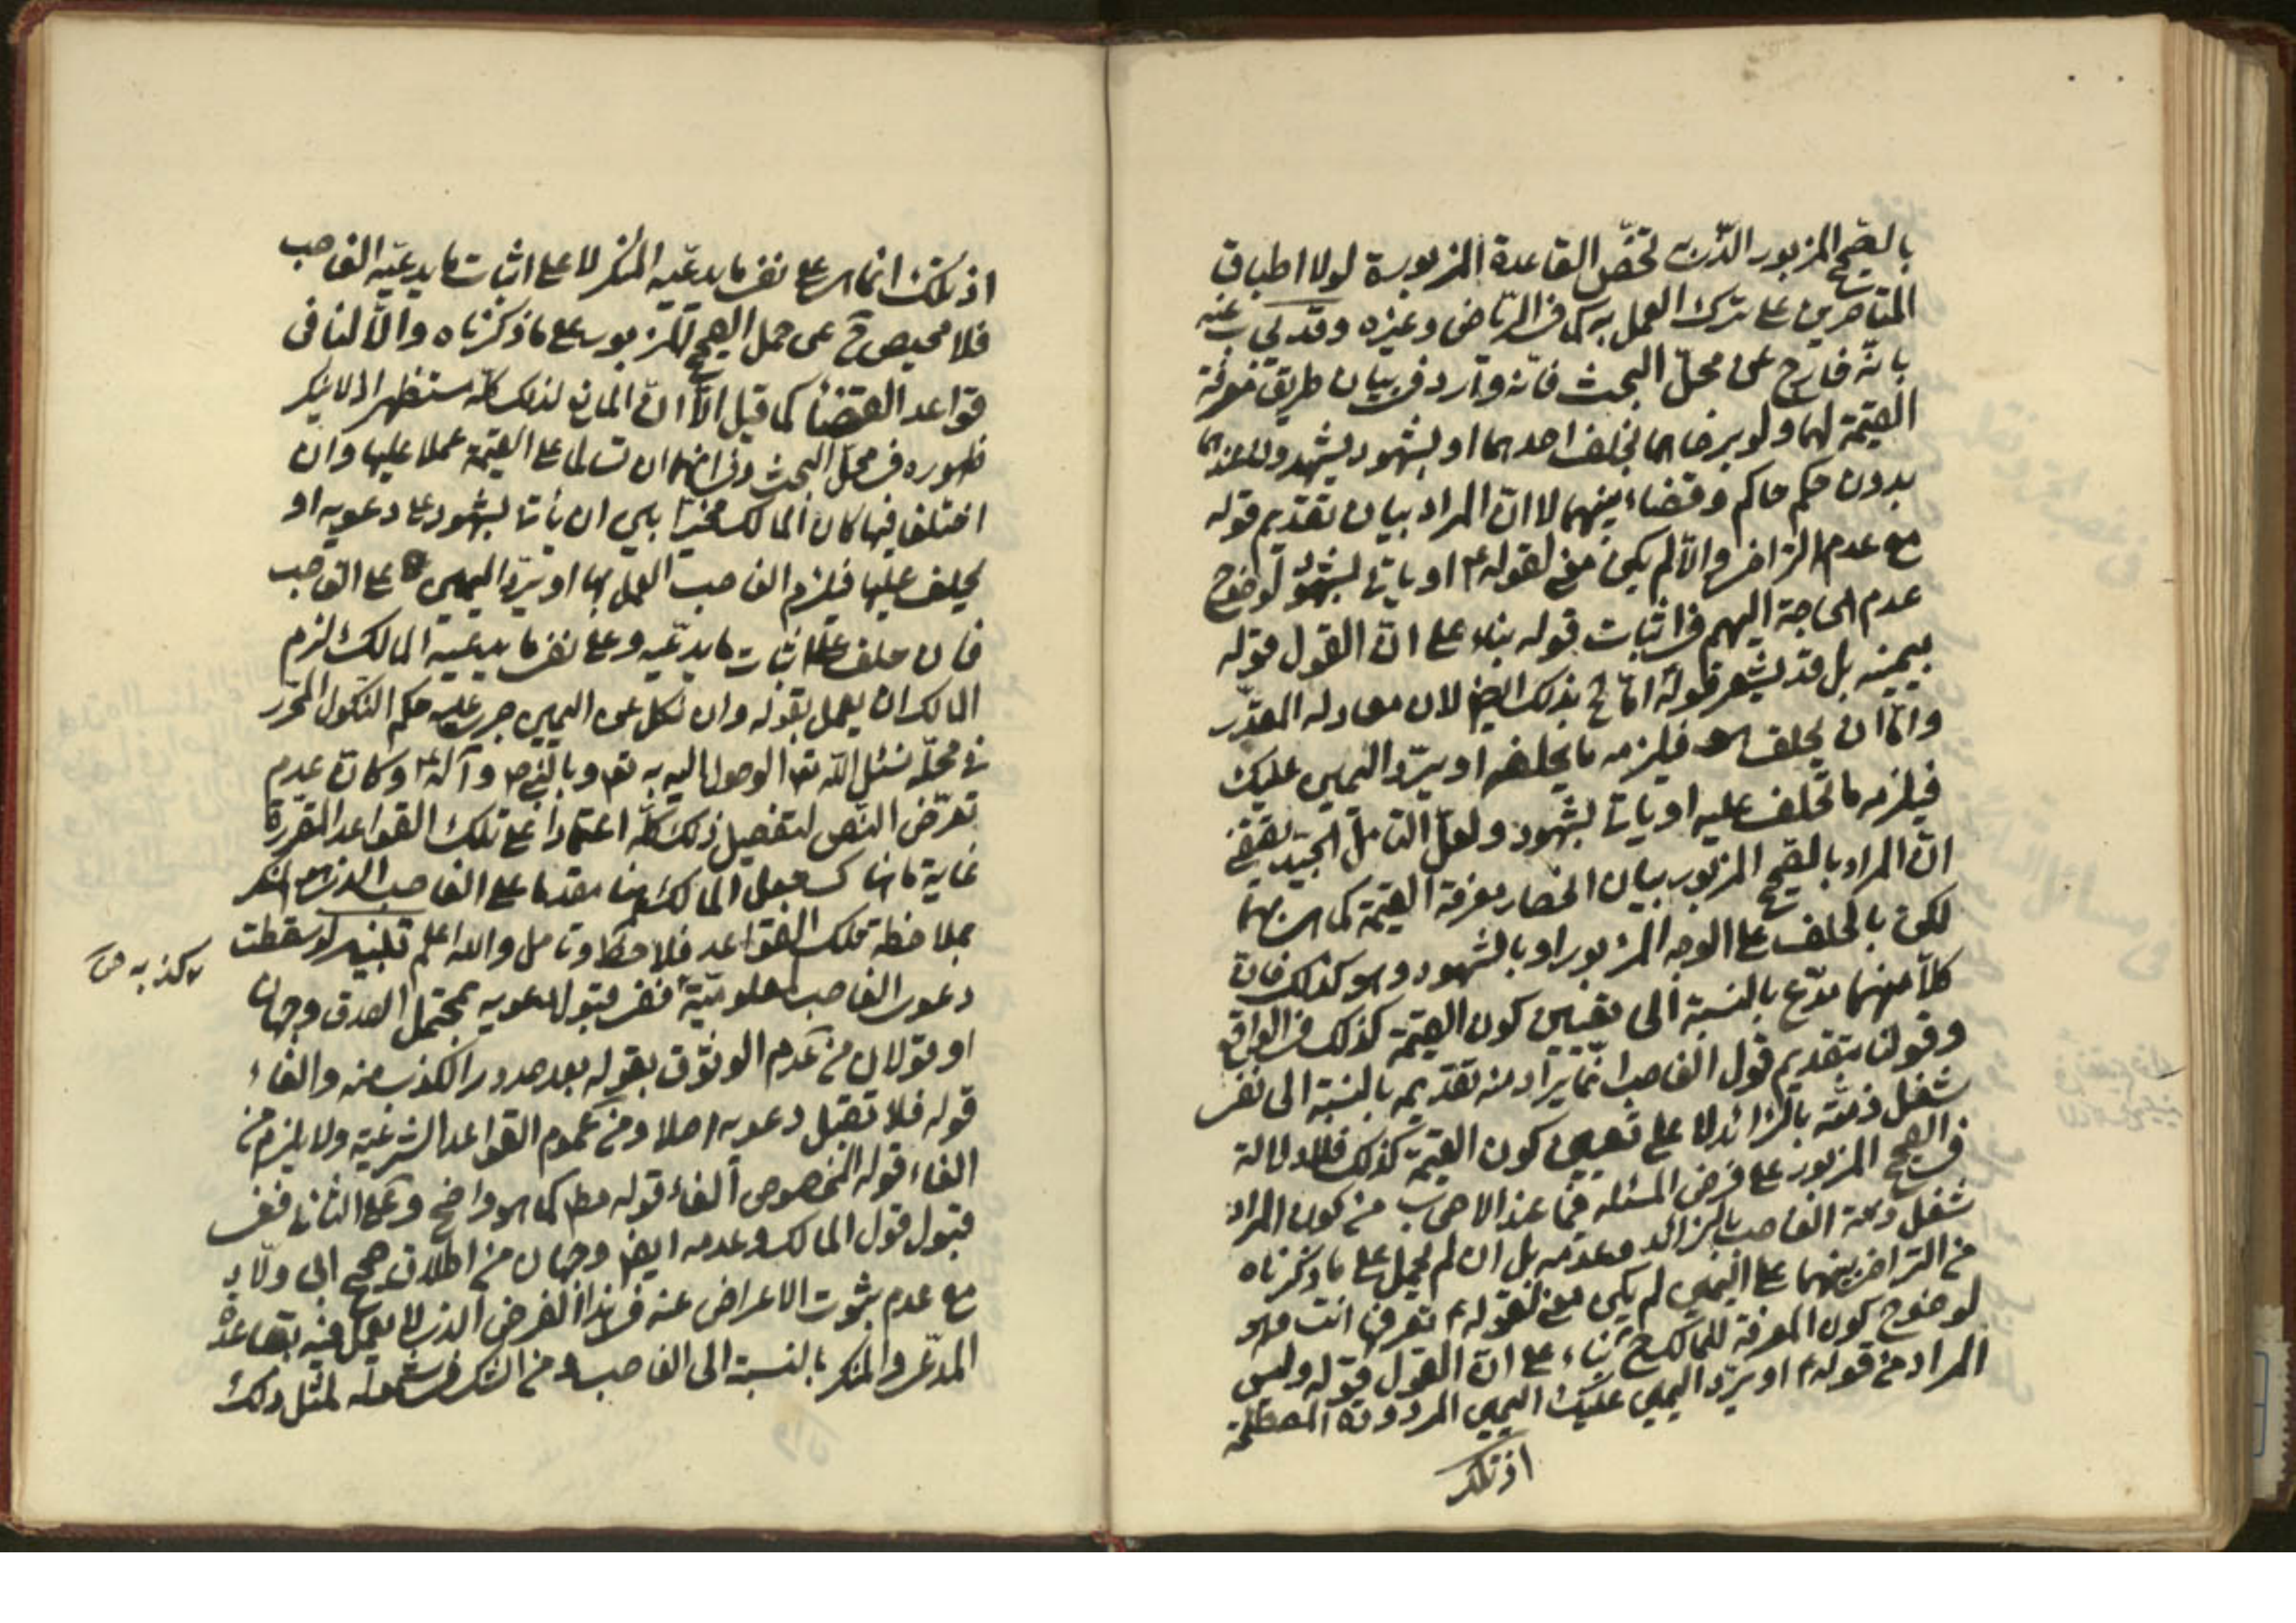 بالصحيح المزبور الذى تخصّ القاعدة المزبورة لولا اطباق
المتاخرين على ترك العمل به كما فى الرياض وغيره وقد يجاب عنه
بانّه خارج عن محلّ البحث فانّه وارد فى بيان طريق معرفة
القيمة لهما ولو برضاهما بحلف احدهما او بشهود يشهدون عندهما
بدون حكم حاكم وقضاء بينهما لا انّ المراد بيان تقديم قوله
مع عدم التراضى والّا لم يكن معنى لقوله ع او ياتى بشهود لوضوح
عدم الحاجة اليهم فى اثبات قوله بناء على انّ القول قوله
بيمينه بل قد يشعر قوله امّا الخ بذلك ايضا لان معادله المقدّر
وامّا ان يحلف هو فيلزمه ما يحلفه او يردّ اليمين عليك
فيلزمه ما تحلف عليه او ياتى بشهود ولعلّ التامّل الجيّد يقتضى
انّ المراد بالصحيح المزبور بيان انحصار معرفة القيمة كما هى بهما
لكن بالحلف على الوجه المزبور او بالشهود وهو كذلك فان
كلّا منهما مدّع بالنسبة الى تعيين كون القيمة كذلك فى الواقع
وقولنا بتقديم قول الغاصب انّما يراد منه تقديمه بالنسبة الى نفى
شغل ذمته بالزائد لا على تعيين كون القيمة كذلك فلا دلالة
فى الصحيح المزبور على فرض المسئلة فيما عند الاصحاب من كون المراد
شغل ذمة الغاصب بالزائد وعدمه بل ان لم يحمل على ما ذكرناه
من التراضى بينهما على اليمين لم يكن معنى لقوله ع تعرفها انت وهو
لوضوح كون المعرفة للمالك ح بناء على انّ القول قوله وليس
المراد من قوله ع او يردّ اليمين عليك اليمين المردودة المصطلحة
اذ تلك
اذ تلك انما هى على نفى ما يدعيه المنكر لا على اثبات ما يدعيه الغاصب
فلا محيص ح عن حمل الصحيح المزبور على ما ذكرناه والّا لنافى
قواعد القضاء كما قيل الّا انّ المانع لذلك كلّه مستظهر اذ لا ينكر
ظهوره فى محلّ البحث وفى انهما ان تسالما على القيمة عملا عليها وان
اختلفا فيها كان المالك مخيّرا بين ان ياتى بشهود على دعويه او
يحلف عليها فيلزم الغاصب العمل بها او يردّ اليمين على الغاصب
فان حلف على اثبات ما يدّعيه وعلى نفى ما يدعيه المالك لزم
المالك ان يعمل بقوله وان نكل عن اليمين جرى عليه حكم النكول المحرّر
فى محلّه نسئل اللّه تعالى الوصول اليه به تعالى وبالنبى ص وآله ع وكان عدم
تعرّض النّص لتفصيل ذلك كلّه اعتمادا على تلك القواعد المقرّرة
غاية ما هناك جعل المالك هنا مقدما على الغاصب الذى هو المنكر
بملاحظة تلك القواعد فلاحظ وتامل واللّه اعلم تنبيه لو سقطت
دعوى الغاصب لمعلوميّة كذبه ففى قبول دعويه بمحتمل الصدق وجهان
او قولان من عدم الوثوق بقوله بعد صدور الكذب منه والغاء
قوله فلا تقبل دعويه اصلا ومن عموم القواعد الشرعيّة ولا يلزم من
الغاء قوله المخصوص الغاء قوله مطلقا كما هو واضح وعلى الثانى ففى
قبول قول المالك وعدمه ايضا وجهان من اطلاق صحيح ابى ولّاد
مع عدم ثبوت الاعراض عنه فى هذا الفرض الذى لا يعمل فيه بقاعدة
المدّعى والمنكر بالنسبة الى الغاصب ومن الشك فى شموله لمثل ذلك
كذبه ص